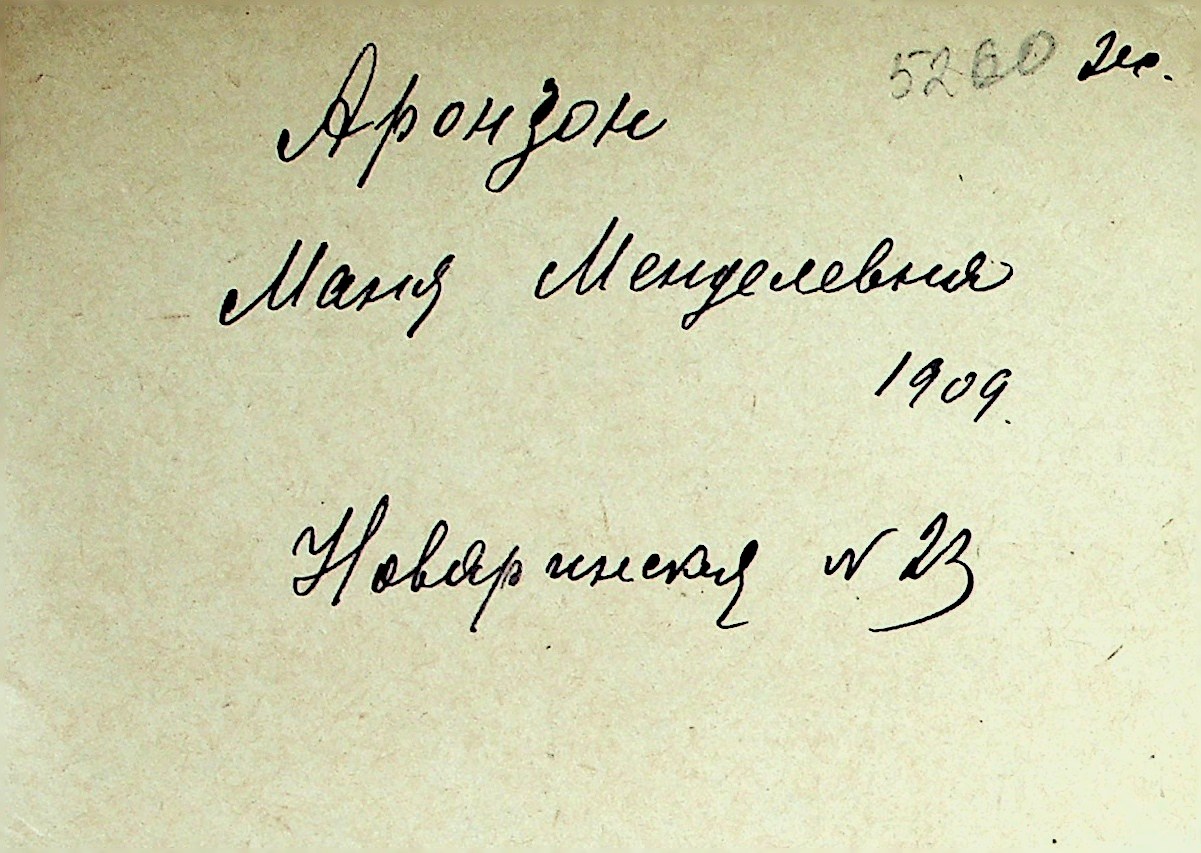 5260
Аронзон
Маня Менделевна
1909.
Новаринская N 23